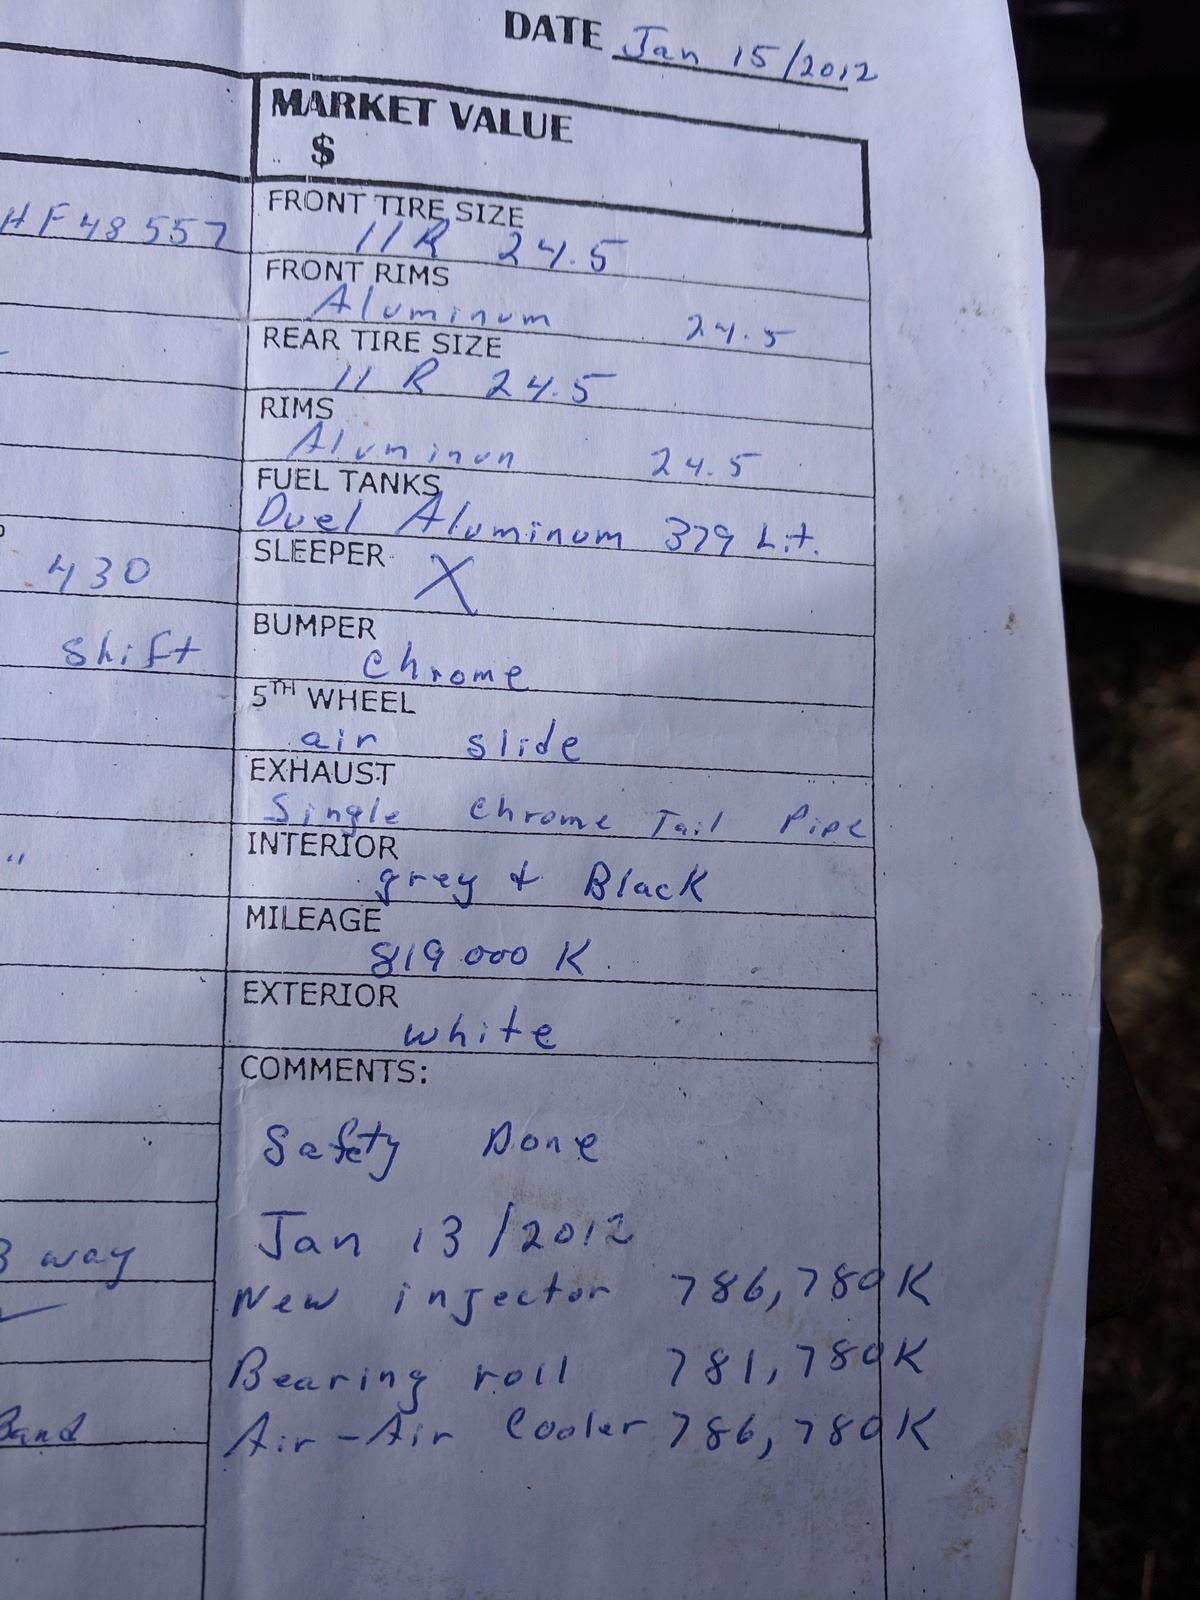 DATE Jan 15/2012
MARKET VALUE
$
FRONT TIRE SIZE
HF48557 11R 24.5
FRONT RIMS
Aluminum 24.5
REAR TIRE SIZE
11 R 24.5
RIMS
Aluminun 24.5
FUEL TANKS
Duel Aluminum 379 Lit.
SLEEPER X
430
BUMPER
Shift chrome
5TH WHEEL
air slide
EXHAUST
Single Chrome Tail Pipe
INTERIOR
" grey + Black
MILEAGE
819 000 K
EXTERIOR
white
COMMENTS:
Safety Done
Jan 13/2012
3 way
New injector 786,780K
Bearing roll 781,780K
Band Air-Air Cooler 786,780K